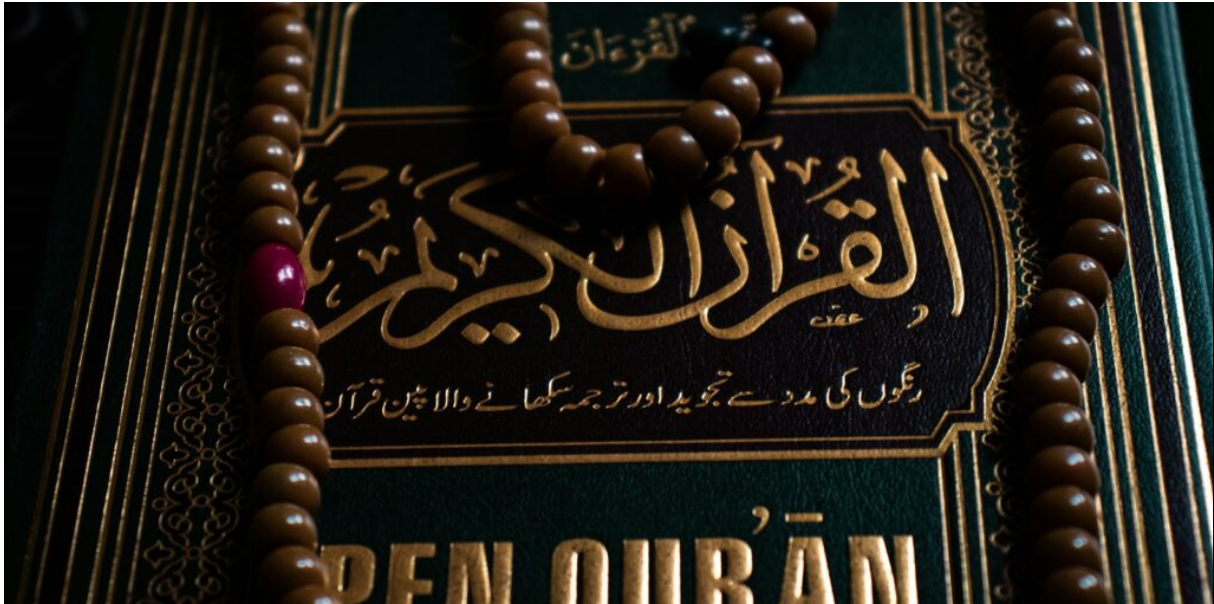 ٱلْقُرْءَان
القرآن الكريم
رنگوں کی مدد سے تجوید اور ترجمہ سکھانے والا پین قرآن
PEN QUR'ĀN